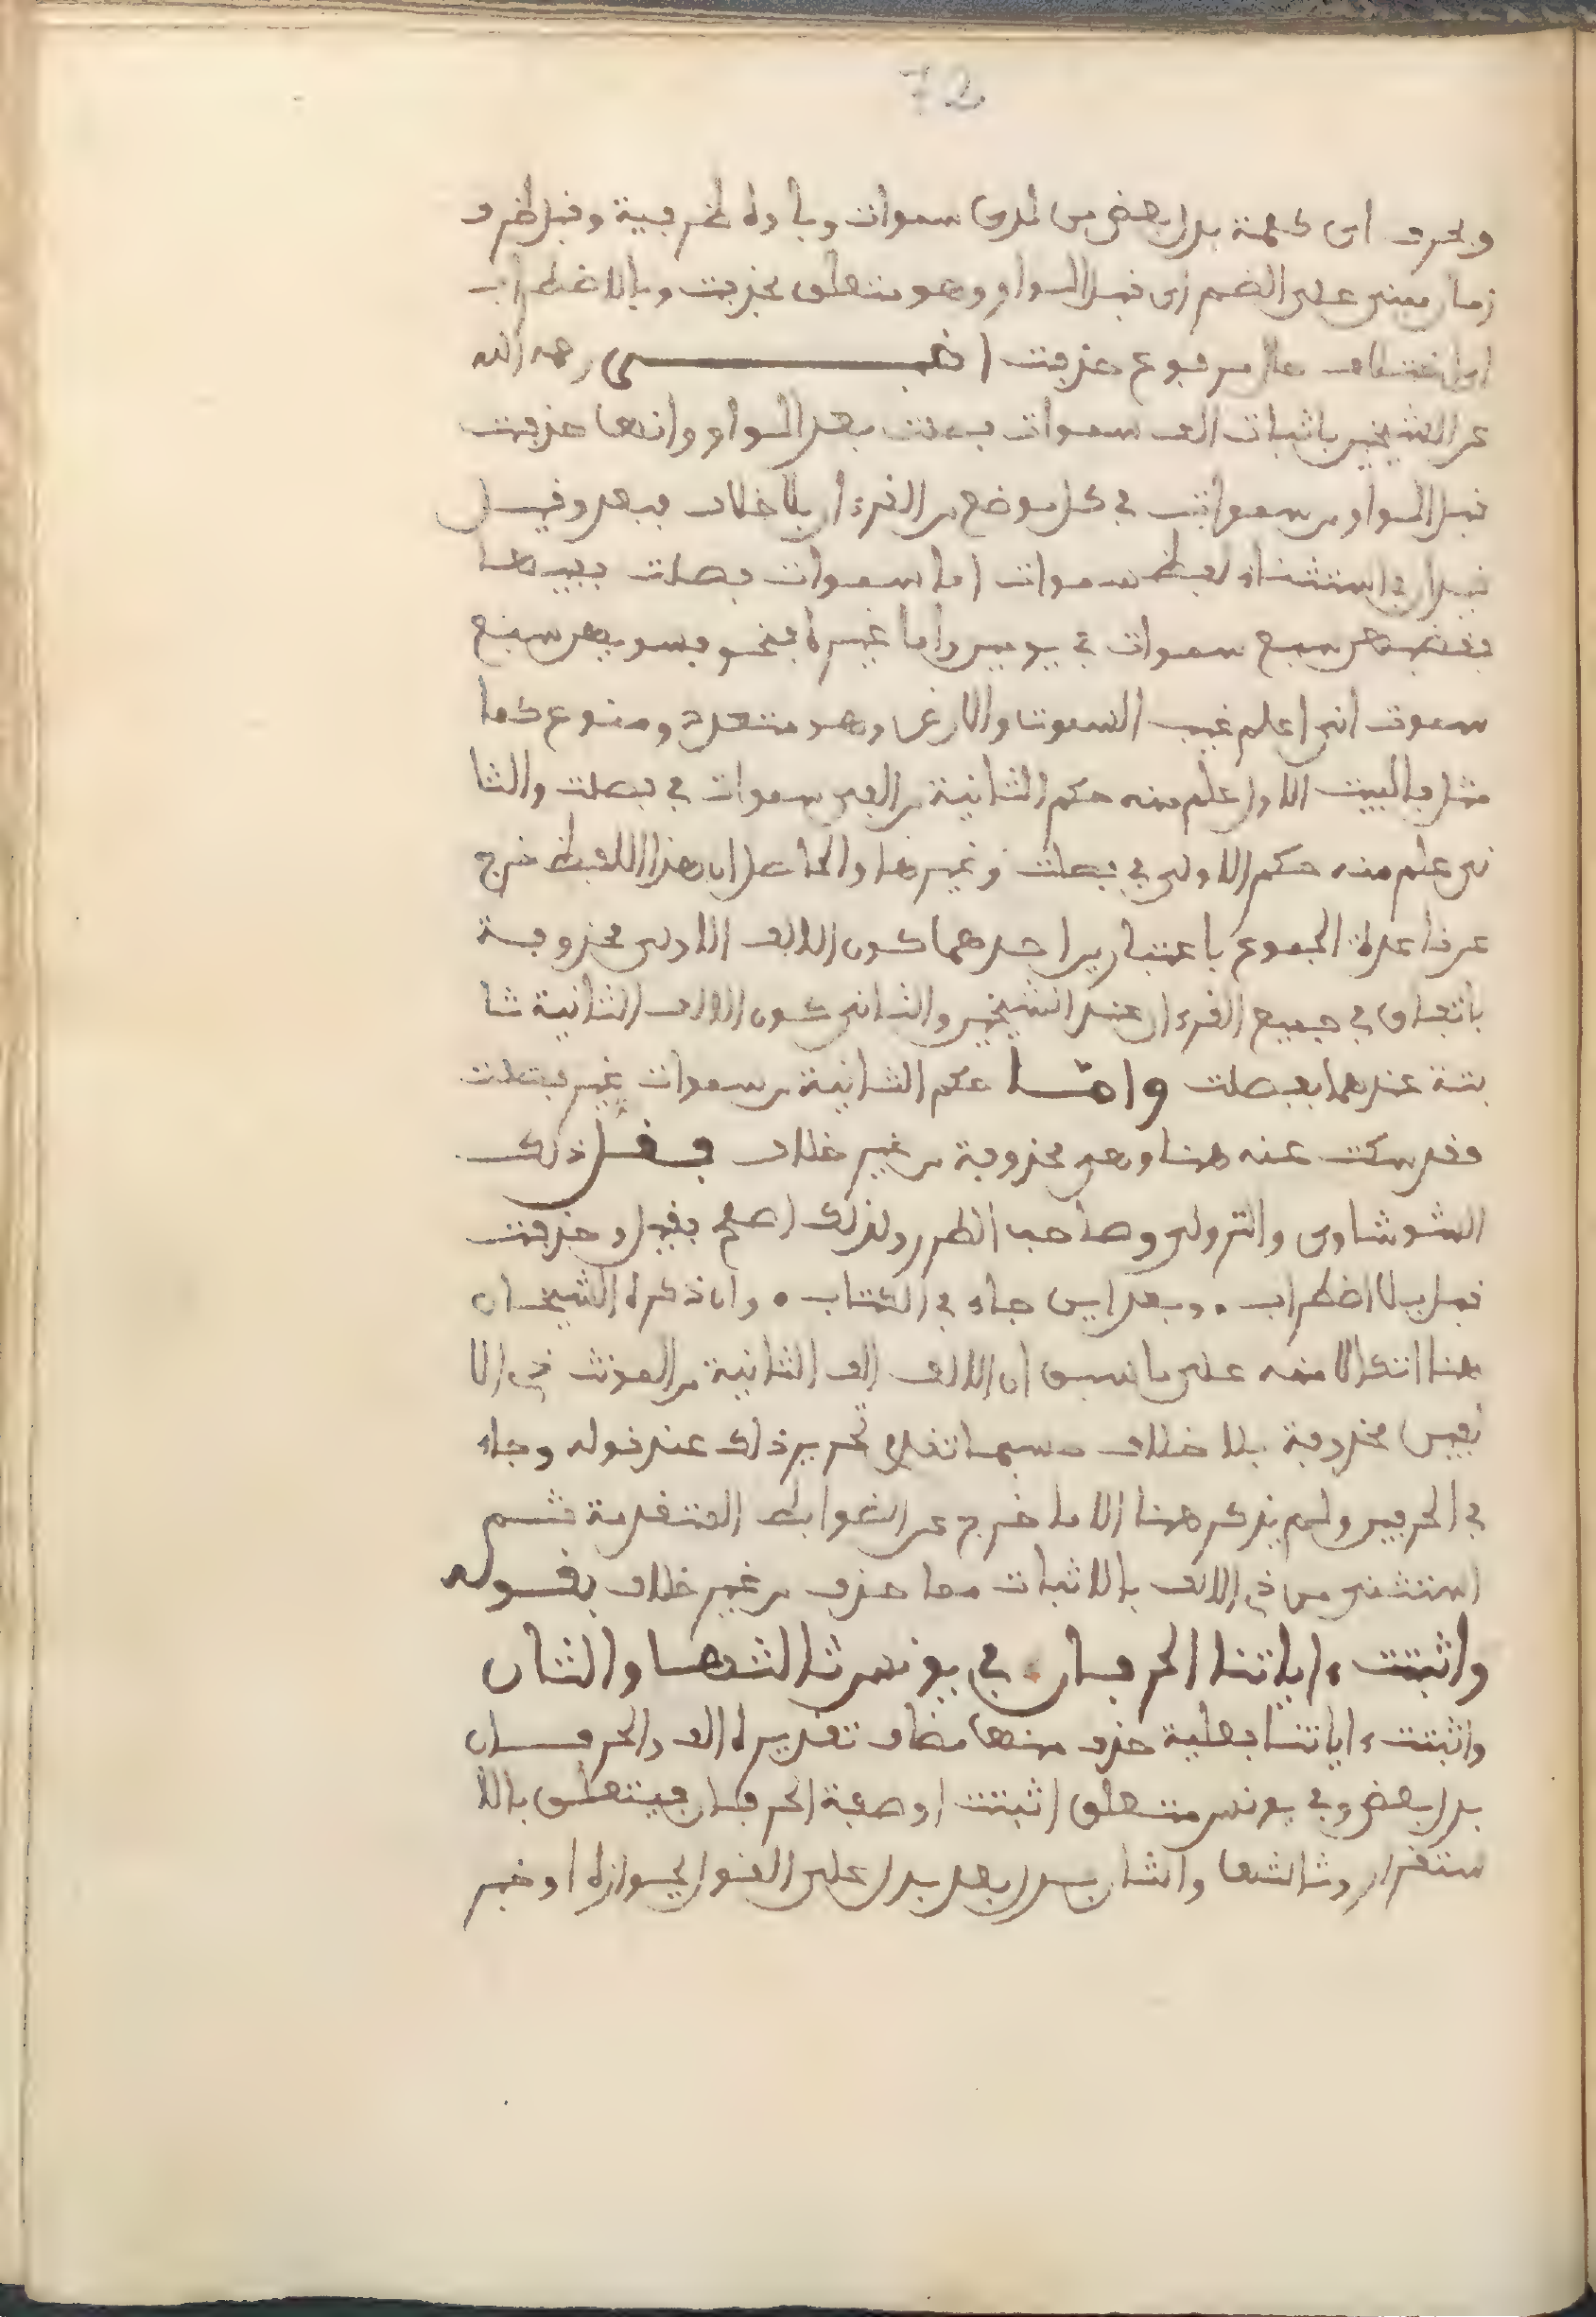 72
وبحرف اى كلمة بدل بعض من لدى سموات وباوه ظرفية وقبل ظرف
زمان مبنى على الضم اى قبل الواو وهو متعلق بحذفت وبلا اضطراب
اى اختلاف حال مرفوع حذفت اخبــــــــر رحمه الله
عن الشيخين باثبات الف سموات بصلت بعد الواو وانها حذفت
قبل الواو من سموات في كل موضع من القرءان بلا خلاف فبعد وقبل
قيدان في استثناء لفظ سموات اما سموات بصلت ففيها
فقضيهن سبع سموات في يومين واما غيره فنحو فسويهن سبع
سموت انى اعلم غيب السموت والارض وهو متعدد ومنوع كما
مثل فالبيت الاول علم منه حكم الثانية من الفى سموات في بصلت والثا
نى علم منه حكم الاولى في بصلت وغيرها والحاصل ان هذا اللفظ خرج
عن قاعدة الجموع باعتبارين احدهما كون الالف الاولى محذوفة
باتفاق في جميع القرءان عند الشيخين والثانى كون الالف الثانية ثا
بتة عندهما بفصلت وامّا حكم الثانية من سموات غير بصلت
فقد سكت عنه هنا وهى محذوفة من غير خلاف فقل ذلك
الشوشاوى والتزولى وصاحب الطرر ولذلك اصلح بقيل وحذفت
قبل بلا اضطراب • وبعد ايس جاء في الكتاب • وان ذكره الشيخان
هنا اتكالا منه على ما سبق ان الالف الف الثانية من المونث في الا
لفين محذوفة بلا خلاف حسبما تقدم تحرير ذلك عند قوله وجاء
في الحرفين ولم يذكر هنا الا ما خرج عن الضوابط المتقدمة ثم
استثنى من ذى الالف بالاثبات مما حذف من غير خلاف بقوله
واثبتت ءاياتنا الحرفان في يونس ثالثها والثان
واثبتت ءاياتنا فعلية حذف منها مضاف تقديره الف والحرفان
بدل بعض وفي يونس متعلق اثبتت او صفة الحرفان فيتعلق بالا
ستقرار وثالثها والثان بدل بعد بدل على القول بجوازه او خبر